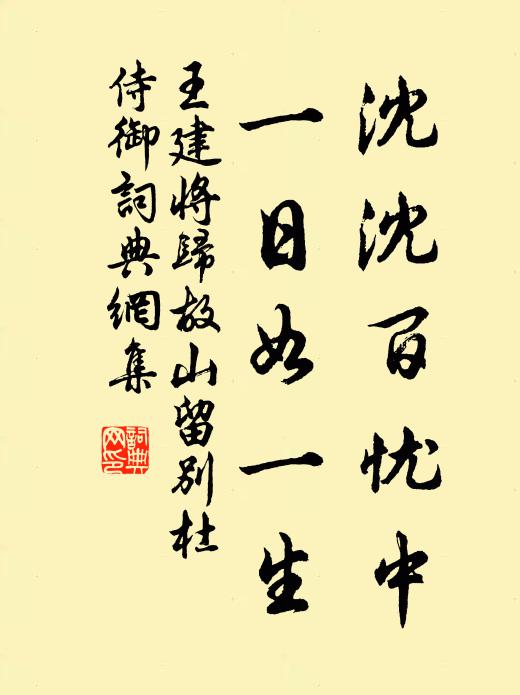 沈沈百忧中
一日如一生
王建将歸故山留别杜
侍御詞典網集
詞典
网印